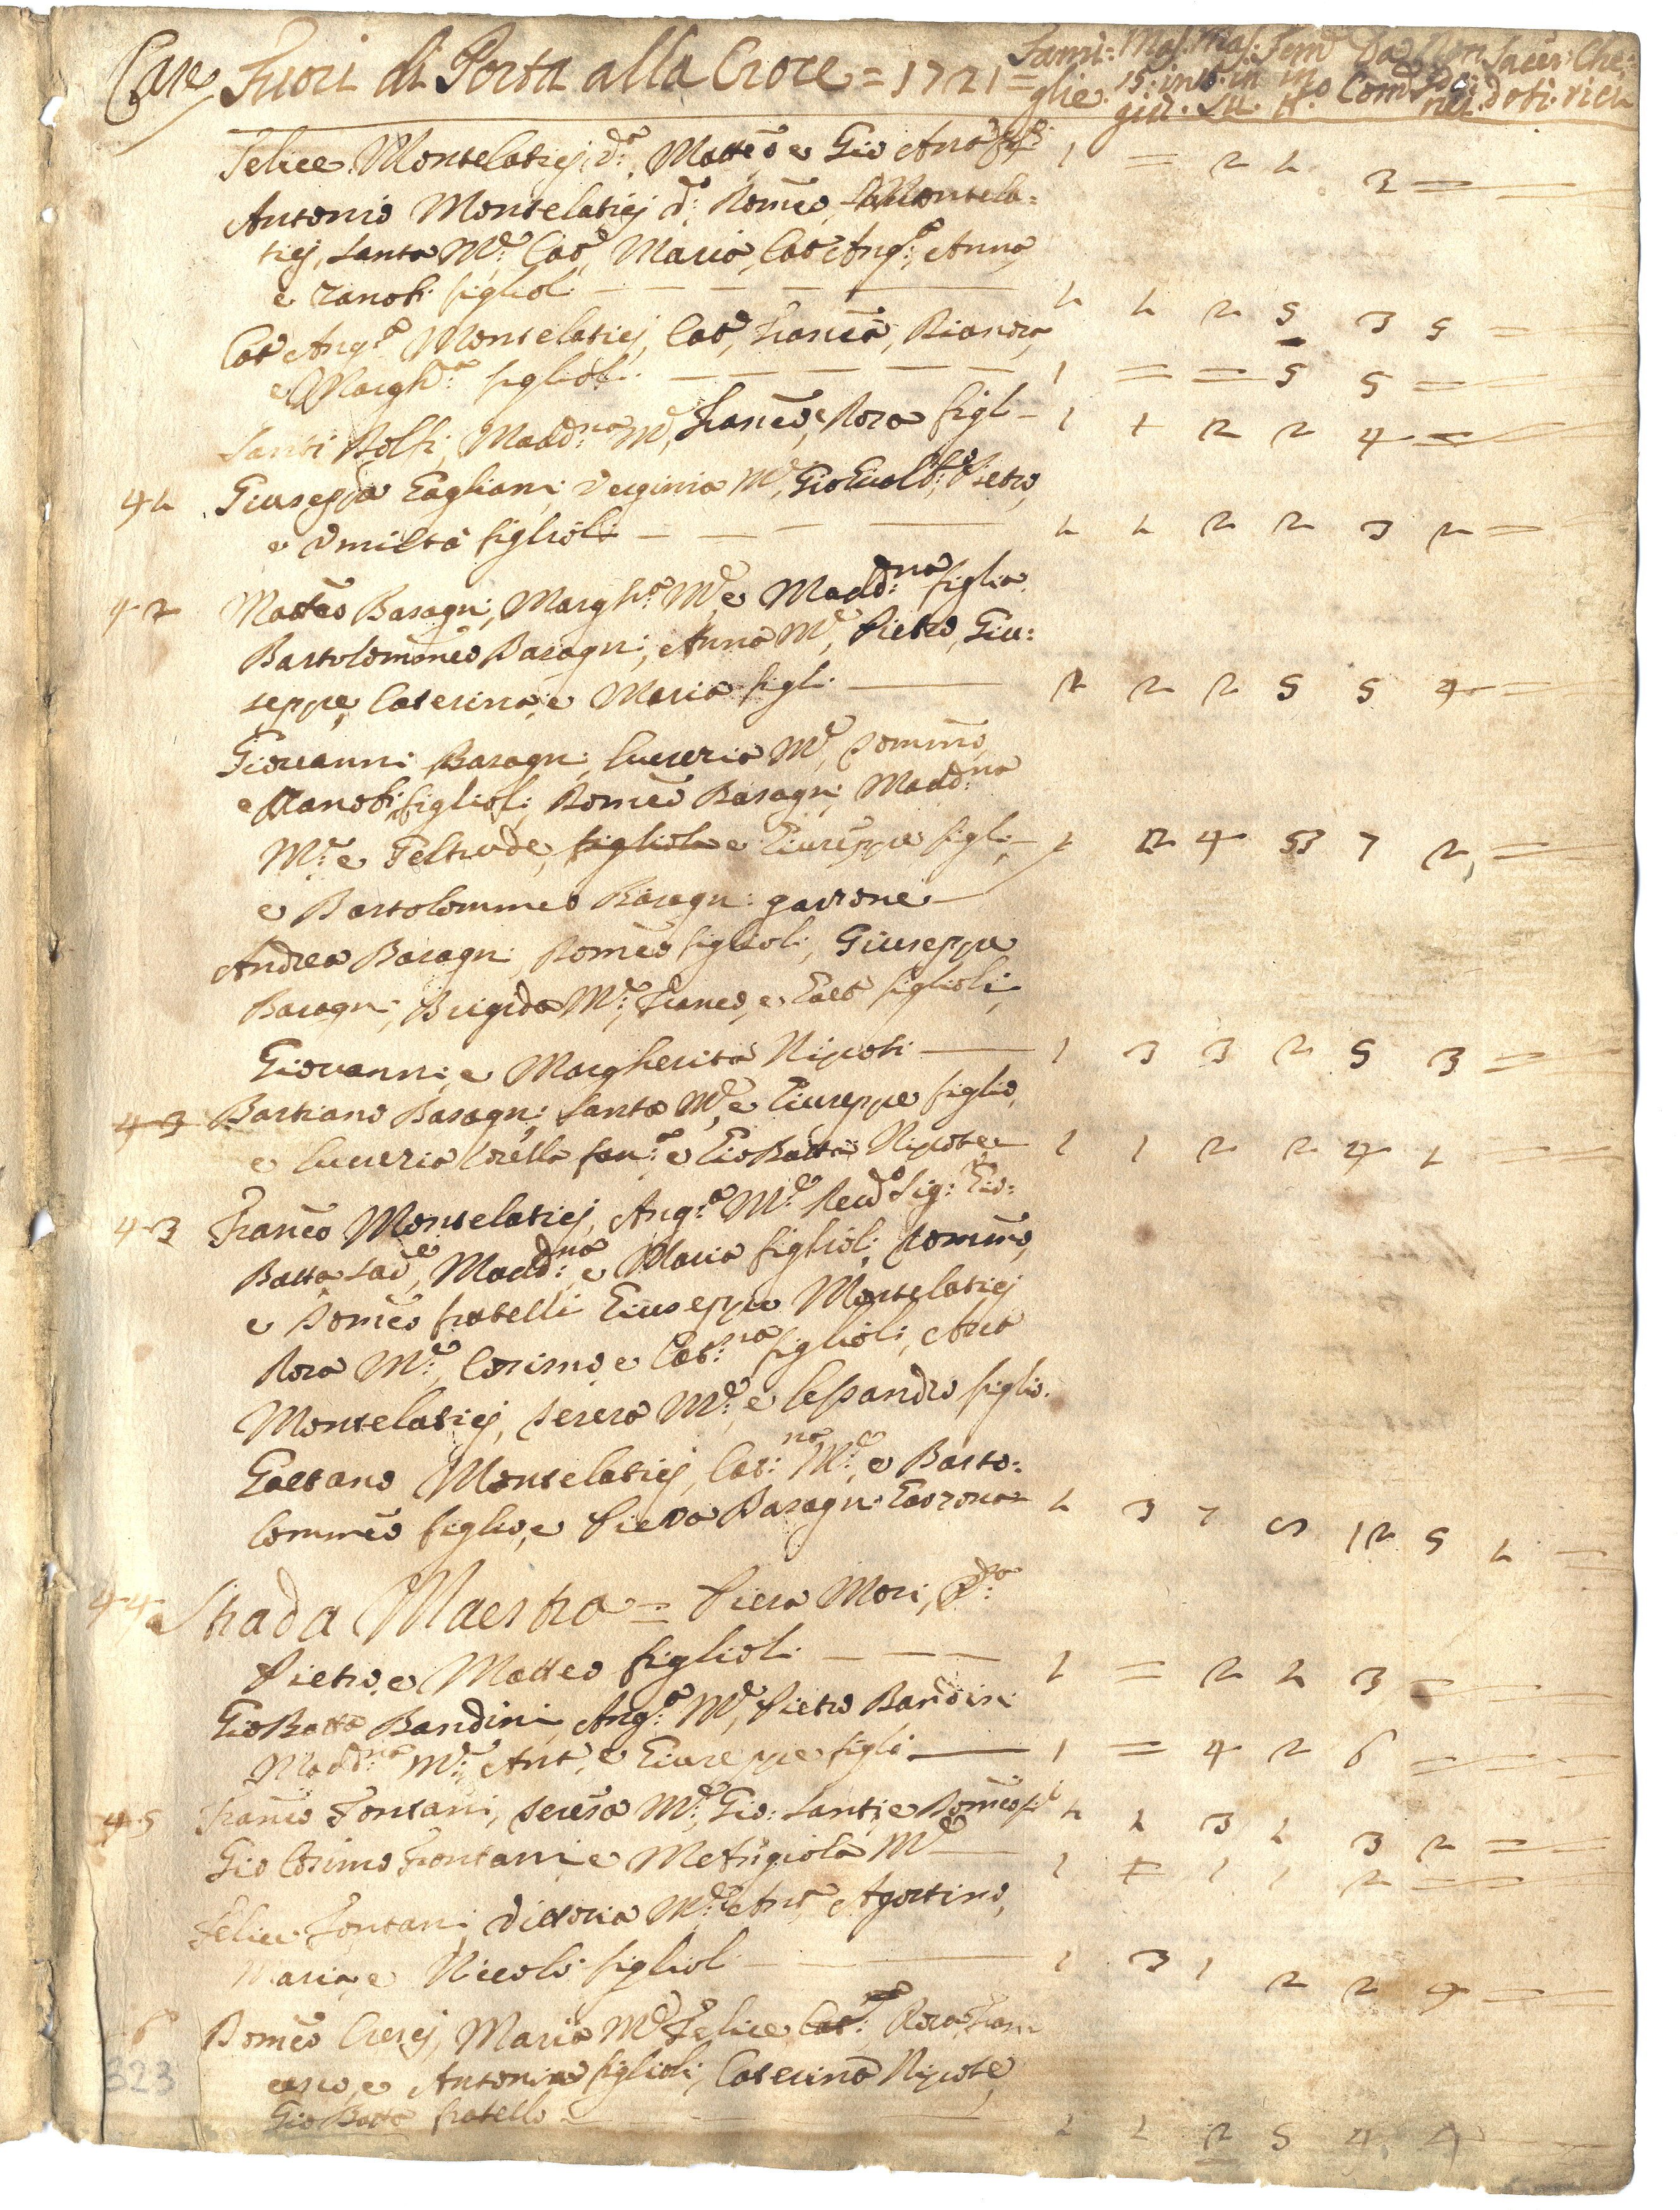 Case Fuori di Porta alla Croce = 1721 = Fami: Mas: Mas: Fem: Da Non Sacer: Che:
glie. 15: in in in Com: doti: rici
giù. Su
Felice Montelatici, Matteo e Gio Anto 1 = 2 1 3 = =
Antonio Montelatici Romeo Montela:
tici, Santa Me: Cat, Maria, Cat Anga: Anna
e Zanobi figlioli 1 1 2 5 3 5 =
Cat Anga Montelatici, Cat, Franca, Bianora,
e Margha: figlioli 1 = = 5 5 = =
Santi Me, Franco, e Rosa figl 1 + 2 2 4 = =
41 Giuseppe Gagliani, Verginia Me, Pietro,
e Umiltà figlioli 1 1 2 2 3 2 =
42 Matteo Baragni, Margha: Me e Maddna: figlia.
Bartolommeo Baragni, Anna Me, Pietro, Giu:
seppe, Caterina, e Maria figli 2 2 2 5 5 4 =
Giovanni Baragni, Lucrezia Me, Dommo,
e Zanobi figlioli, Domeo Baragni, Maddna
Me: e Geltrude, figliola e Giuseppe figli 1 2 4 3 7 2, =
e Bartolommeo Baragni garzone
Andrea Baragni, Domeo figlioli, Giuseppe
Baragni, Brigida Me:, Franco, e Gaeto figlioli,
Giovanni, e Margherita Nipoti 1 3 3 2 5 3 =
43 Bastiano Baragni, Santa Me, e Giuseppe figlio,
e Lucrezia e Gio Batta Nipote 1 1 2 2 4 1 = =
43 Franco Montelatici, Anga: Me: Revdo Sig: Gio:
Batta Sace, Maddna: e Maria figlioli, Dommo,
e Domeo fratelli Giuseppe Montelatici
Rosa Me: Cosimo e Catna: figlioli, Anto
Montelatici, Teresa Me: e Lessandro figlio.
Gaetano Montelatici, Catna: Me:, e Barto:
lommeo figlio, e Piero Baragni Garzone 1 3 7 5 12 5 1 =
44 Strada Maestra = Piera Mori, Va:
Pietro, e Matteo figlioli 1 = 2 1 3 =
Gio Batta Bandini, Anga: Me, Pietro Bandini
Maddna: Me:, Anto, e Giuseppe figli 1 = 4 2 6 = =
45 Franco Fontani, Teresa Me: Gio: Santi e Domeo fi 1 1 3 1 3 2 =
Gio Cosimo Fontani e Me 1 + 1 1 2 = =
Felice Fontani, Vittoria Me: Anto, Agostino,
Maria, e Nicolò figlioli 1 3 1 2 2 4 =
6 Domeo Cresci, Maria Me Felice, Cat: Rosa, Fran
cesco, e Antonio figlioli, Caterina Nipote,
323
Gio Batta fratello 1 1 2 5 4 4